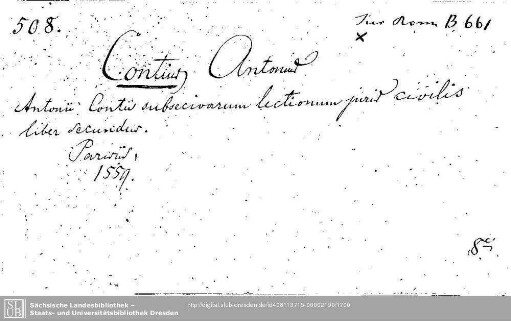 508.
Jus Rom B, 661
x
Contius, Antonius
Antonii Contii subsecivarum lectionum juris civilis
liber secundus.
Parisiis,
1559.
8°
SLUB
Sächsische Landesbibliothek –
Staats- und Universitätsbibliothek Dresden